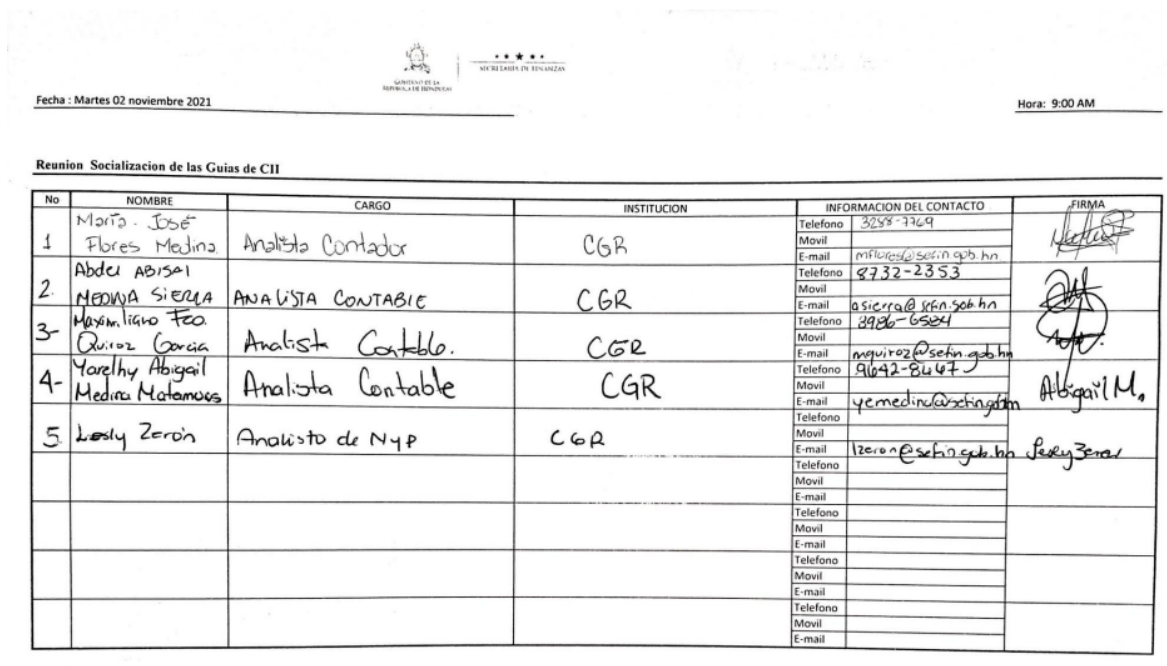 GOBIERNO DE LA
REPÚBLICA DE HONDURAS
SECRETARÍA DE FINANZAS
Fecha : Martes 02 noviembre 2021
Hora: 9:00 AM
Reunion Socializacion de las Guias de CII
No NOMBRE CARGO INSTITUCION INFORMACION DEL CONTACTO FIRMA
1 María. José Flores Medina. Analista Contador CGR
Telefono 3288-7769
Movil
E-mail mflores@sefin.gob.hn
2. Abdel ABISAI MEDINA SiERRA ANALISTA CONTABLE CGR
Telefono 8732-2353
Movil
E-mail asierra@sefin.gob.hn
3- Maximiliano Fco. Quiroz Garcia Analista Contable. CGR
Telefono 8986-6584
Movil
E-mail mquiroz@sefin.gob.hn
4- Yarelhy Abigail Medina Matamoros Analista Contable CGR
Telefono 9642-8467
Movil
E-mail yemedina@sefin.gob.hn
Abigail M.
5. Lesly Zerón Analista de NyP CGR
Telefono
Movil
E-mail lzeron@sefin.gob.hn
Lesly Zeron
Telefono
Movil
E-mail
Telefono
Movil
E-mail
Telefono
Movil
E-mail
Telefono
Movil
E-mail